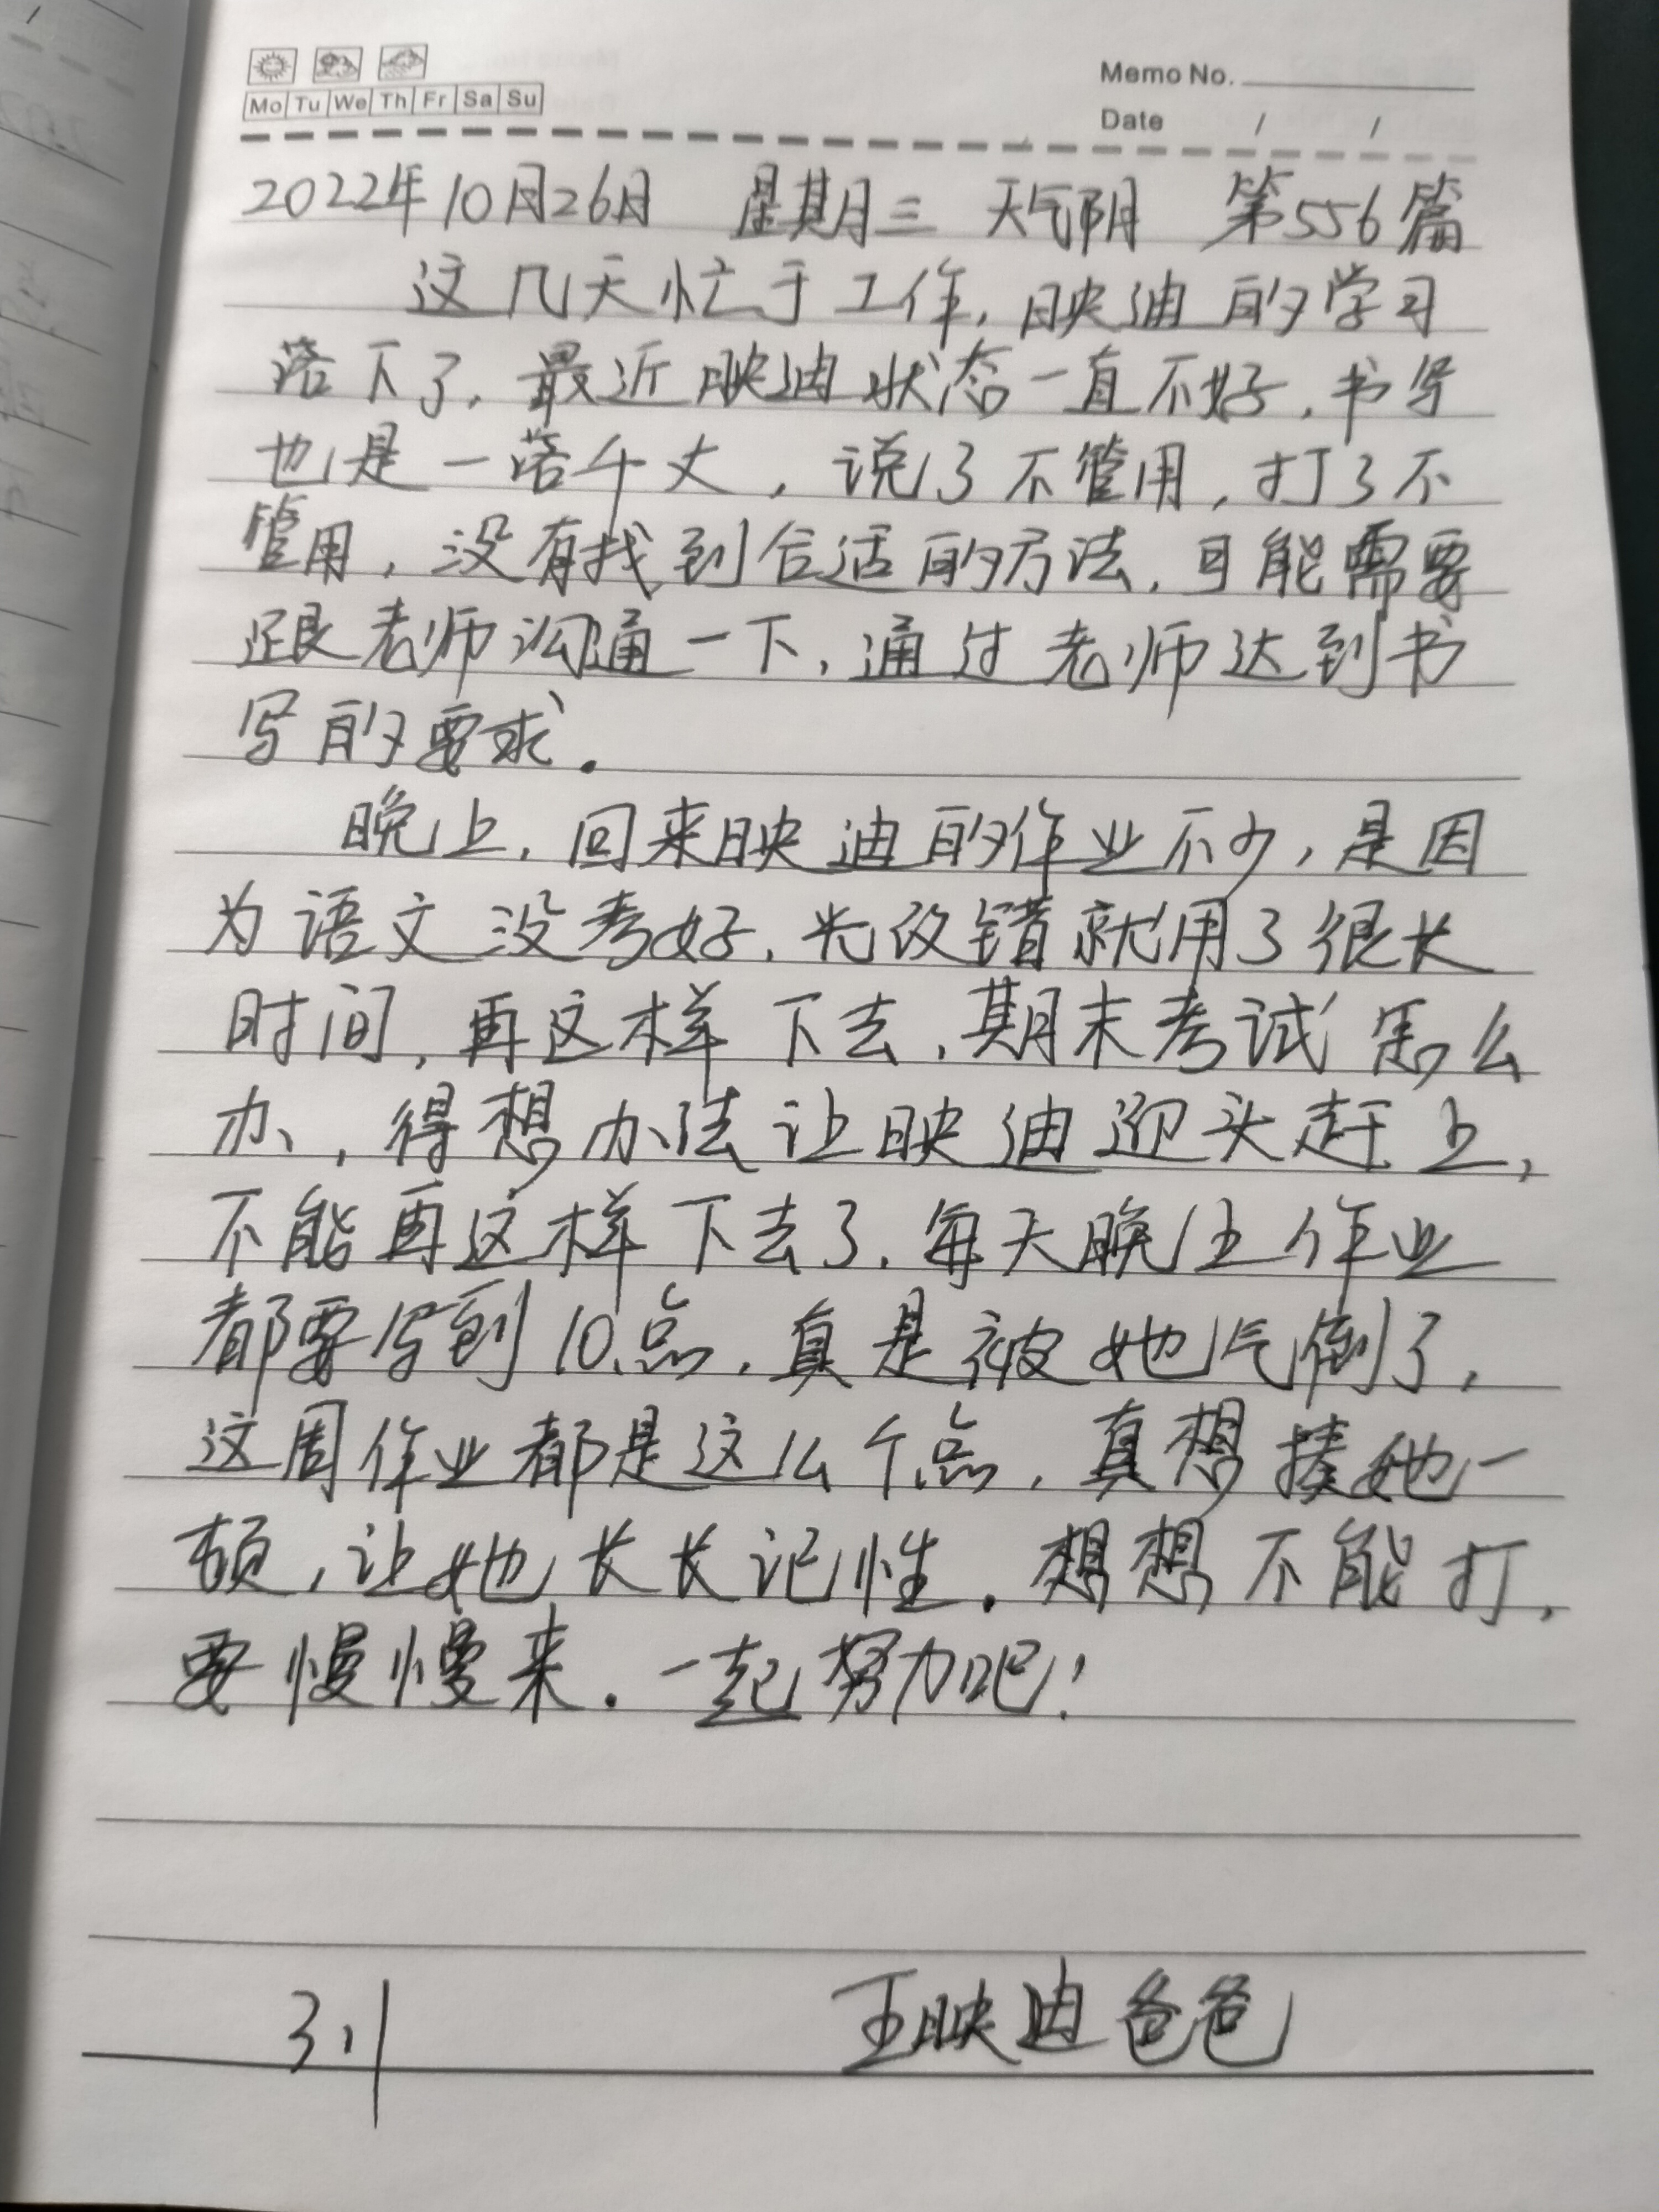 Mo Tu We Th Fr Sa Su
Memo No.
Date / /
2022年10月26日 星期三 天气阴 第556篇
这几天忙于工作,映迪的学习
落下了,最近映迪状态一直不好,书写
也是一落千丈,说了不管用,打了不
管用,没有找到合适的方法,可能需要
跟老师沟通一下,通过老师达到书
写的要求.
晚上,回来映迪的作业不少,是因
为语文没考好,光改错就用了很长
时间,再这样下去,期末考试怎么
办,得想办法让映迪迎头赶上,
不能再这样下去了,每天晚上作业
都要写到10点,真是被她气倒了,
这周作业都是这么个点,真想揍她一
顿,让她长长记性.想想不能打,
要慢慢来.一起努力吧!
3.1 王映迪爸爸